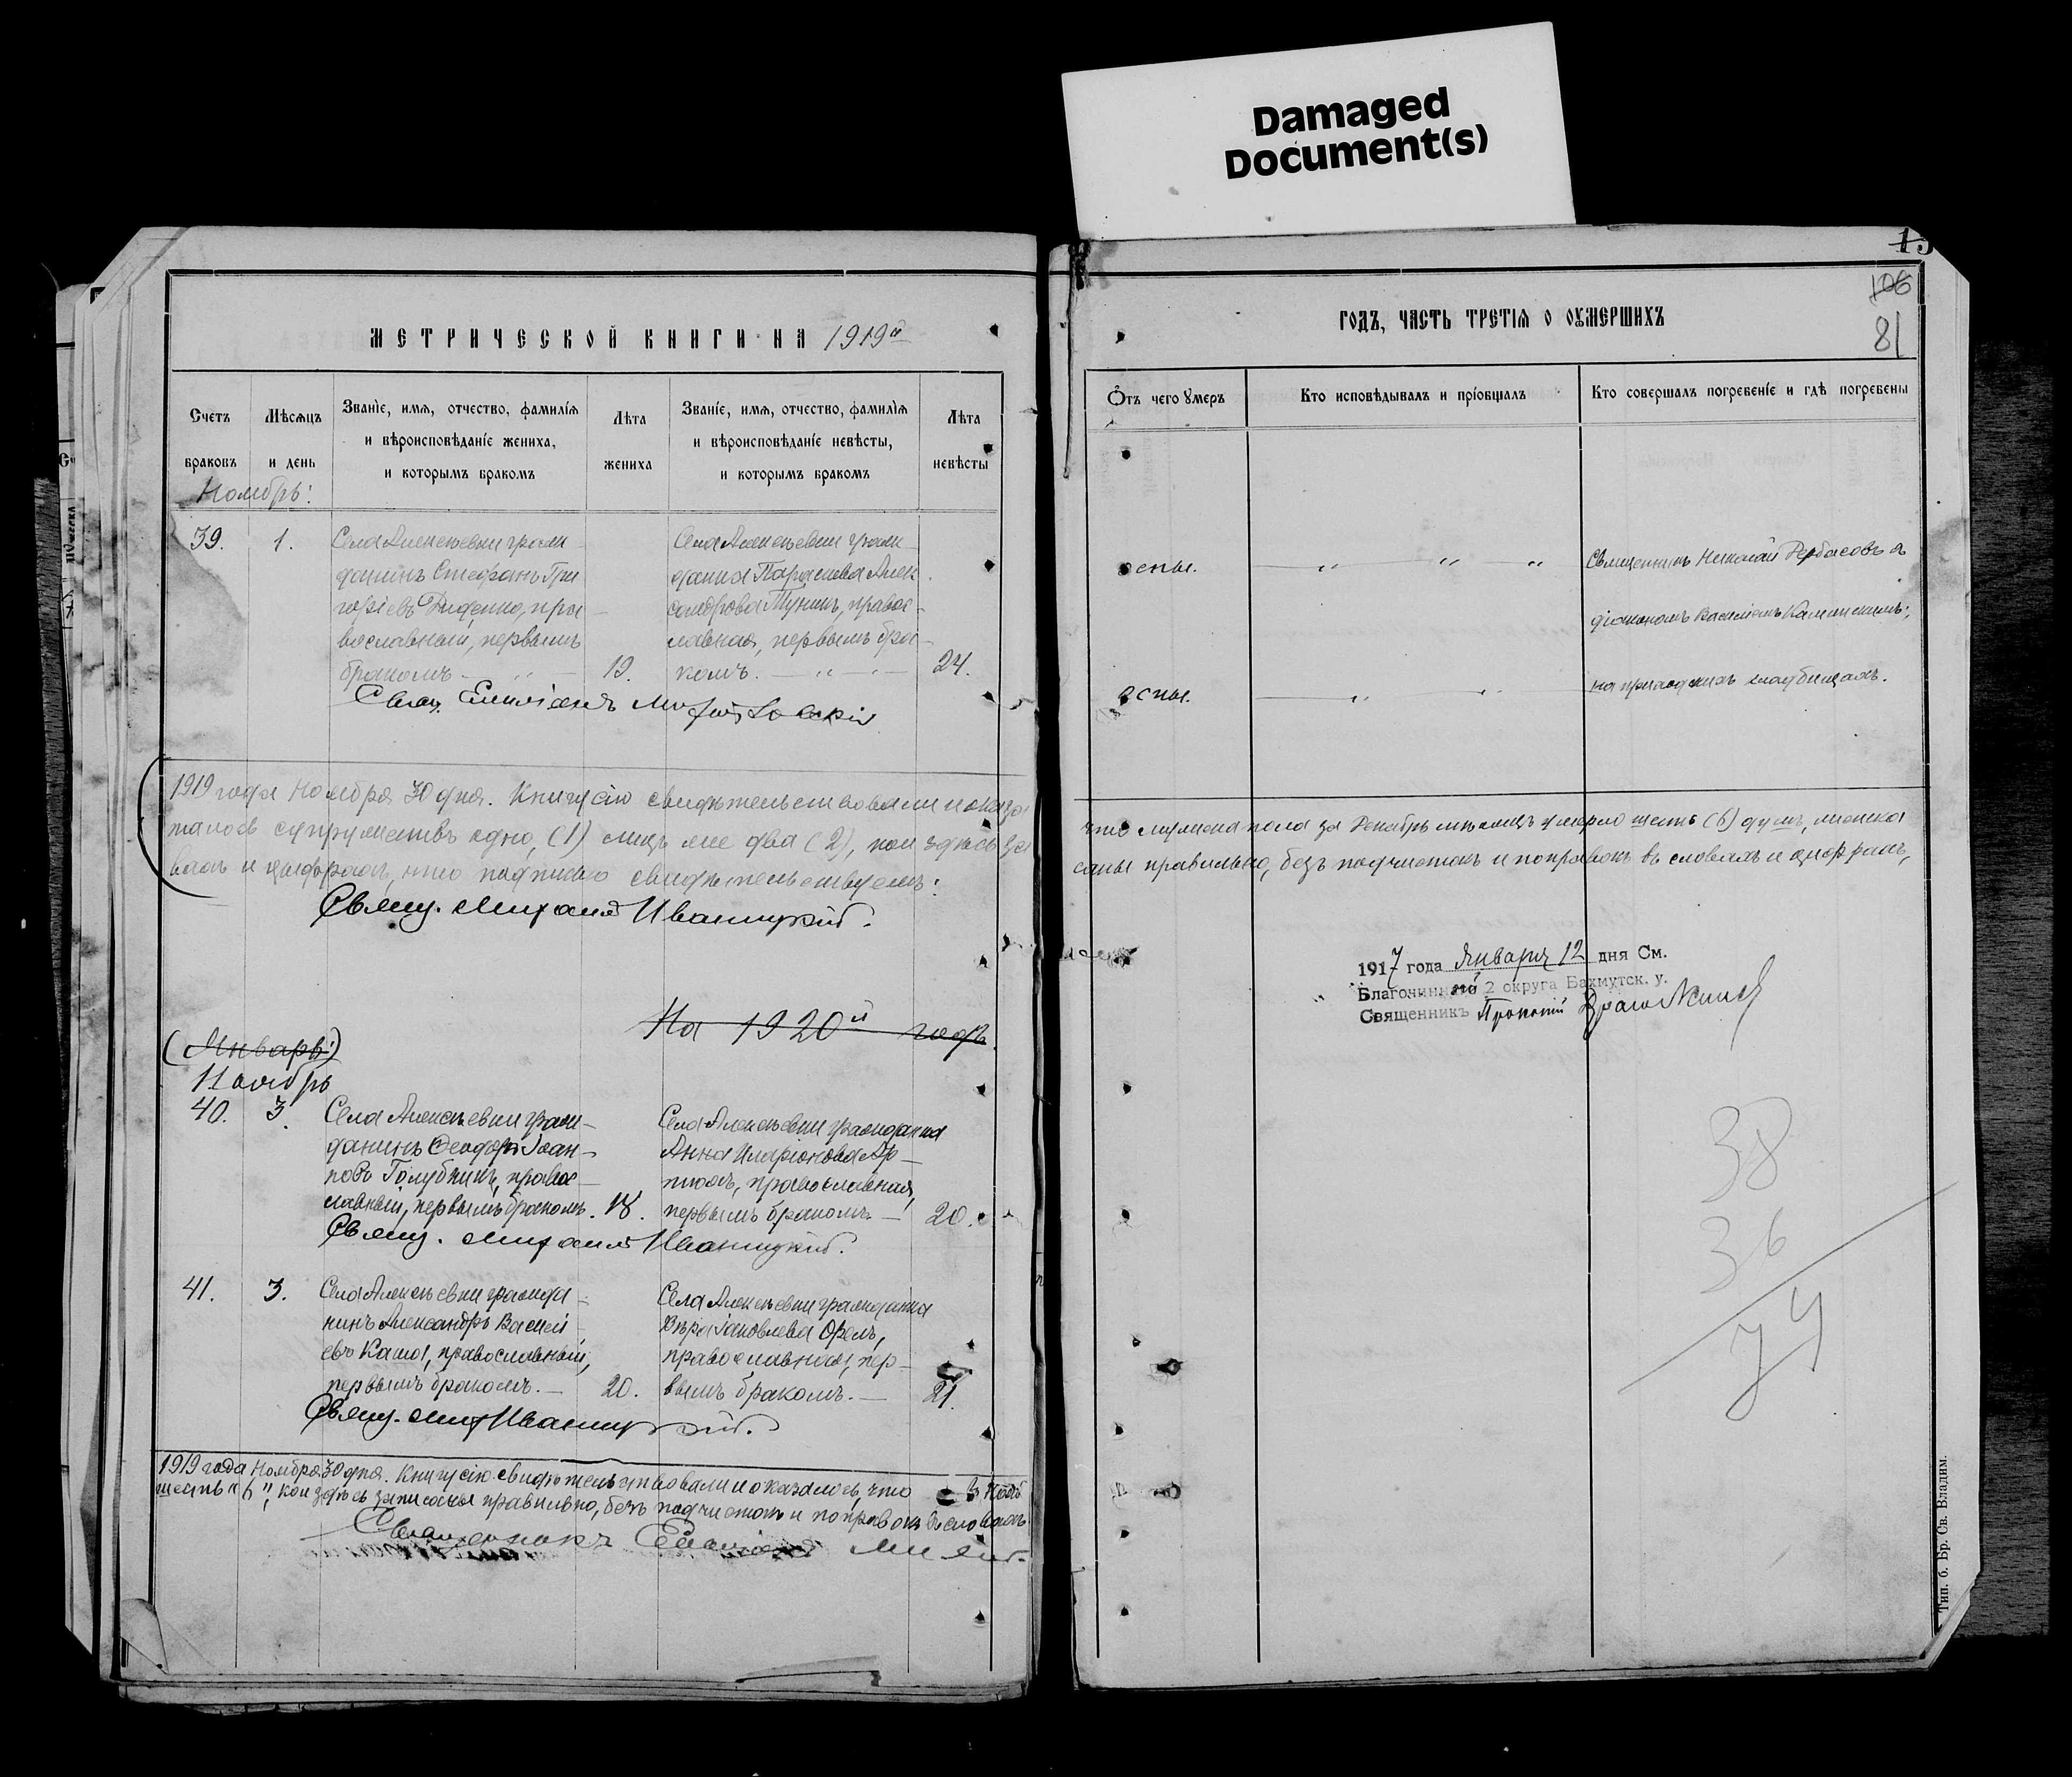 Damaged
Document(s)
МЕТРИЧЕСКОЙ КНИГИ НА 1919й
Счетъ браковъ
Мѣсяцъ и день
Званіе, имя, отчество, фамилія и вѣроисповѣданіе жениха, и которымъ бракомъ
Лѣта жениха
Званіе, имя, отчество, фамилія и вѣроисповѣданіе невѣсты, и которымъ бракомъ
Лѣта невѣсты
Ноябрь:
39. 1.
Села Алексѣевки граж-
данинъ Стефанъ Гри
горіевъ Диденко, пра-
вославный, первымъ
бракомъ
19.
Села Алексѣевки граж-
данка Параскева Алек
сандрова Тунинъ, правос-
лавная, первымъ бра-
комъ.
24.
Свящ. Емиліанъ
1919 года Ноября 30 дня. Книгу сію свидѣтельствовали и оказа
талось супружествъ одно, (1) лицъ два (2), кои здѣсь за
вахъ и цыфрахъ, что подписью свидѣтельствуемъ:
Свящ. Михаилъ Иваницкій.
На 1920й годъ.
(Январь:)
Ноябрь
40. 3.
Села Алексѣевки граж-
данинъ Ѳеодоръ Іоан-
новъ Голубникъ, правос-
лавный, первымъ бракомъ.
18.
Села Алексѣевки гражданка
Анна Иларіонова Ар-
тюхъ, православная,
первымъ бракомъ.
20.
Свящ. Михаилъ Иваницкій.
41. 3.
Села Алексѣевки гражда-
нинъ Александръ Васил
евъ Каша, православный,
первымъ бракомъ.
20.
Села Алексѣевки гражданка
Вѣра Іаковлева Орелъ,
православная, пер-
вымъ бракомъ.
21.
Свящ. Мих Иваницкій.
1919 года Ноября 30 дня. Книгу сію свидѣтельствовали и оказалось, что въ Нояб
шесть "6", кои здѣсь записаны правильно, безъ подчистокъ и поправокъ въ словахъ
Священникъ
15
106
81
ГОДЪ, ЧАСТЬ ТРЕТІЯ О ОУМЕРШИХЪ
Отъ чего умеръ
Кто исповѣдывалъ и пріобщалъ
Кто совершалъ погребеніе и гдѣ погребены
оспы.
Священникъ Николай
діакономъ Василіемъ Каминскимъ;
оспы.
на приходскихъ кладбищахъ.
что мужеска пола за Декабрь мѣсяцъ умерло шесть (6) душъ, женска
саны правильно, безъ подчистокъ и поправокъ въ словахъ и цифрахъ,
1917 года Января 12 дня См.
Благочинный 2 округа Бахмутск. у.
Священникъ
38
36
74
Тип. б. Бр. Св. Владим.